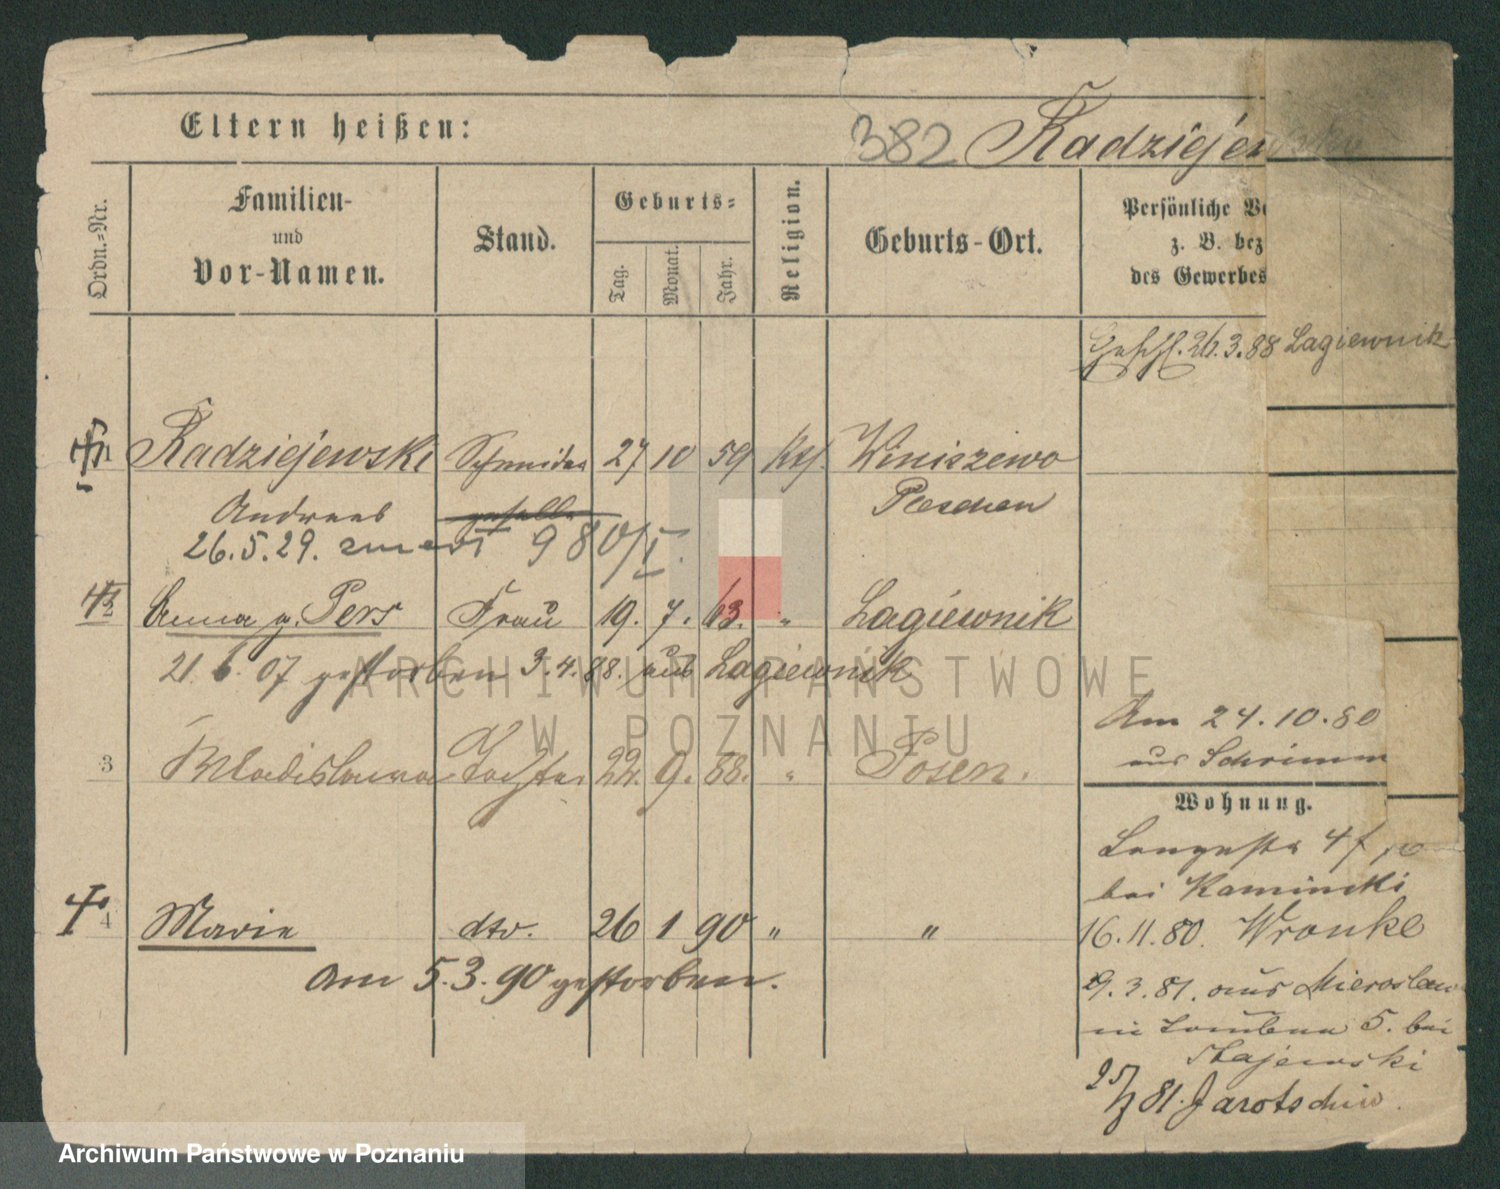 Eltern heißen:
382 Radziejewski
Ordn.-Nr.
Familien-
und
Vor-Namen.
Stand.
Geburts-
Tag.
Monat.
Jahr.
Religion.
Geburts-Ort.
Persönliche
z. B. bez
des Gewerbes
Geschl. 26.3.88 Lagiewnik
1 Radziejewski Schneider 27 10 59 kth. Winiszewo
Andreas geselle Pleschen
26.5.29. 980/I.
2 Anna g. Pers Frau 19. 7. 63. " Lagiewnik
21 6. 07 gestorben 3.4.88. aus Lagiewnik
Am 24.10.80
aus Schrimm
3 Wladislawa Tochter 22. 9. 88. " Posen.
Wohnung.
Langestr 4
bei Kaminski
4 Marie dto. 26 1 90 " "
16.11.80. Wronke
am 5.3.90 gestorben.
29.3.81. aus Mieroslaw
5. bei
Stajewski
81. Jarotschin.
ARCHIWUM PAŃSTWOWE
W POZNANIU
Archiwum Państwowe w Poznaniu